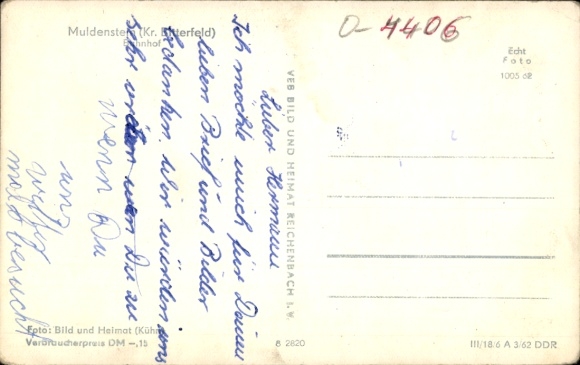 Muldenstein (Kr. Bitterfeld)
Bahnhof
O-4406
Echt
Foto
1005 62
VEB BILD UND HEIMAT REICHENBACH i. V.
Lieber Hermann
Ich möchte mich für Deinen
lieben Brief und Bilder
bedanken. Wir würden uns
sehr wenn Du zu
wenn Du
uns
besucht
Foto: Bild und Heimat (Kühn)
Verbraucherpreis DM -,15
B 2820
III/18/6 A 3/62 DDR